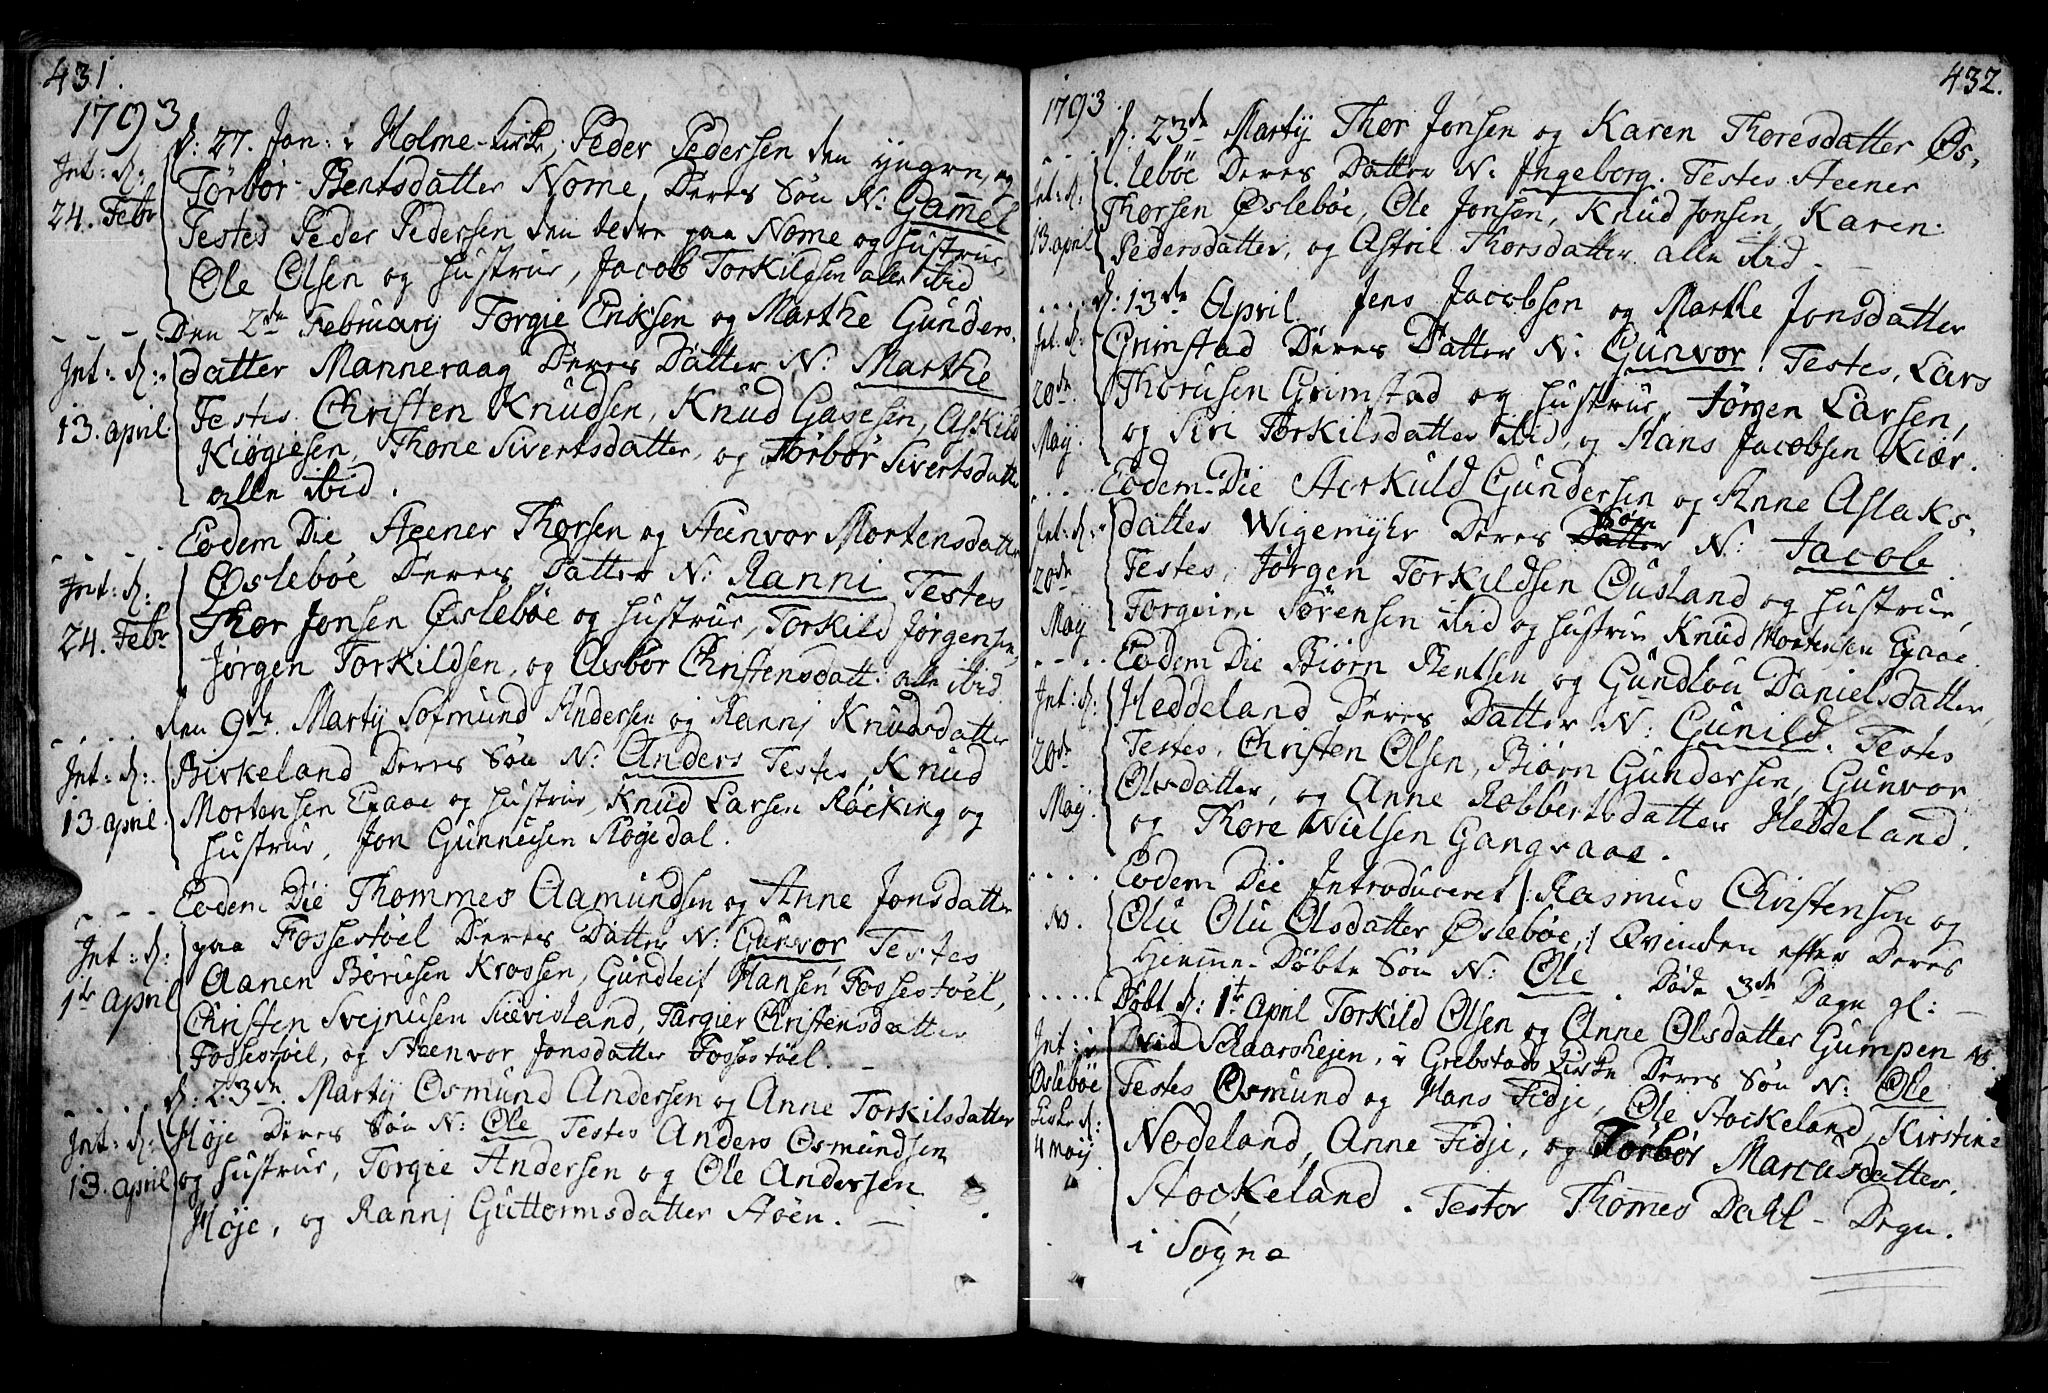 431.
1793
d: 27. Jan: i Holme-Kirke, Peder Pedersen den yngre, og
Int: d:
24. Febr
Torbor Bentsdatter Nome, Deres Søn N: Gamel
Testes Peder Pedersen den ældre paa Nome og hustrue,
Ole Olsen og hustrue, Jacob Torkildsen alle ibid
Den 2de February Torgie Eriksen og Marthe Gunders-
Int: d:
13. april
datter Manneraag Deres Datter N: Marthe
Testes Christen Knudsen, Knud Gasesen, Askild
Kiøgiesen, Thone Sivertsdatter, og Torbør Sivertsdatter
alle ibid.
Eodem Die Steener Thorsen og Steenvor Mortensdatter
Int: d:
24. Febr
Øslebøe Deres Datter N: Ranni Testes
Thor Jonsen Øslebøe og hustrue, Torkild Jørgensen,
Jørgen Torkildsen, og Asbor Christensdatt: alle ibid
den 9de. Martij Sofmund Andersen og Rannj Knudsdatter
Int: d:
13. april
Birkeland Deres Søn N: Anders Testes, Knud
Mortensen Egaae og hustrue, Knud Larsen Røcking og
hustrue, Jon Gunnersen Støgedal.
Eodem Die Thommes Aamundsen og Anne Jonsdatter
Int: d:
1te april
paa Fossestøel Deres Datter N: Gunvor Testes
Aanen Børuesen Krossen, Gundleif Hansen Fossestøel,
Christen Svejnusen Sievisland, Targier Christensdatter
Fossestøel, og Steenvor Jonsdatter Fossestøel. —
d. 23de. Martij Osmund Andersen og Anne Torkilsdatter
Int: d:
13. april
Høje Deres Søn N: Ole Testes Anders Osmundsen
og hustrue, Torgie Andersen og Ole Andersen
Høje, og Rannj Guttormsdatter Støen. —
432.
1793
d. 23de Martij Thor Jonsen og Karen Thoresdatter Øs-
Int: d:
13. april
lebøe Deres Datter N: Ingeborg. Testes Steener
Thorsen Øslebøe, Ole Jonsen, Knud Jonsen, Karen
Pedersdatter, og Astril Thorsdatter alle ibid —
d: 13de April. Jens Jacobsen og Marthe Jonsdatter
Int: d:
20de.
May:
Grimstad Deres Datter N: Gunvor! Testes, Lars
Thorusen Grimstad og hustrue, Jørgen Larsen,
og Siri Torkilsdatter ibid, og Hans Jacobsen Kiær.
Eodem Die Storkuld Gundersen og Anne Aslaks-
Int: d:
20de
May
datter Wigemyhr Deres Datter Søn N: Jacob
Testes, Jørgen Torkildsen Ousland og hustrue,
Torgeirn Sørensen ibid og hustrue Knud Mortensen Egaae.
Eodem Die Biørn Bentsen og Gundlou Danielsdatter,
Int: d:
20de
May.
Heddeland Deres Datter N: Gunild. Testes
Testes, Christen Olsen, Biørn Gundersen, Gunvor
Olsdatter, og Anne Robbertsdatter Heddeland.
og Thore Nielsen Gangsaae.
Eodem Die Introduceret /: Rasmus Christensen og
N.
Olu Olu Olsdatter Øslebøe, :/ Qvinden efter Deres
Hiemme-Døbte Søn N: Ole. Døde 3de Dage gl: —
Døbt d: 1te April Torkild Olsen og Anne Olsdatter Gumpen
Int: i
Øslebøe
Kirke d:
4 maij
Skaarshejen, i Grebstads Kirke Deres Søn N: Ole
Testes Osmund og Hans Fidje, Ole Stockeland, Kirstine
Nodeland, Anne Fidje, og Torbør Marcusdatter
Stockeland. Testor Thomes Dahl — Degn.
i Sogne